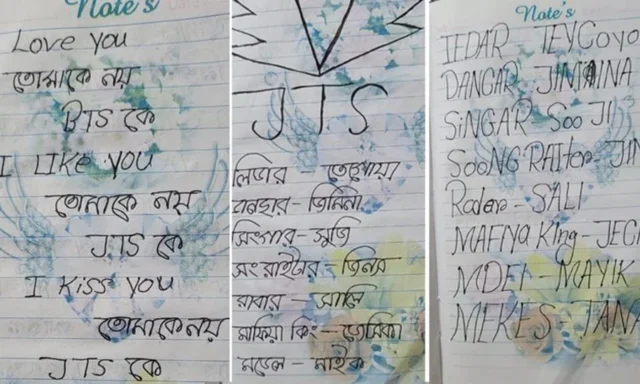 Note's
Love you
তোমাকে নয়
BTS কে
I LIKE YOU
তোমাকে নয়
JTS কে
I KISS YOU
তোমাকে নয়
JTS কে
JTS
লিডার – তেয়োয়া
ডানছার – জিমিনা
সিংগার – সুজি
সং রাইটার – জিনস
রাবার – সালি
মাফিয়া কিং – জেসিকা
মডেল – মাইক
Note's
IEDAR – TEYCOYO
DANCAR JIMAINA
SiNGAR Soo JI
SooNG RAITer – JIN
Rader – SALI
MAFIYA King – JECI
MDEL – MAYIK
MEKES – TANA